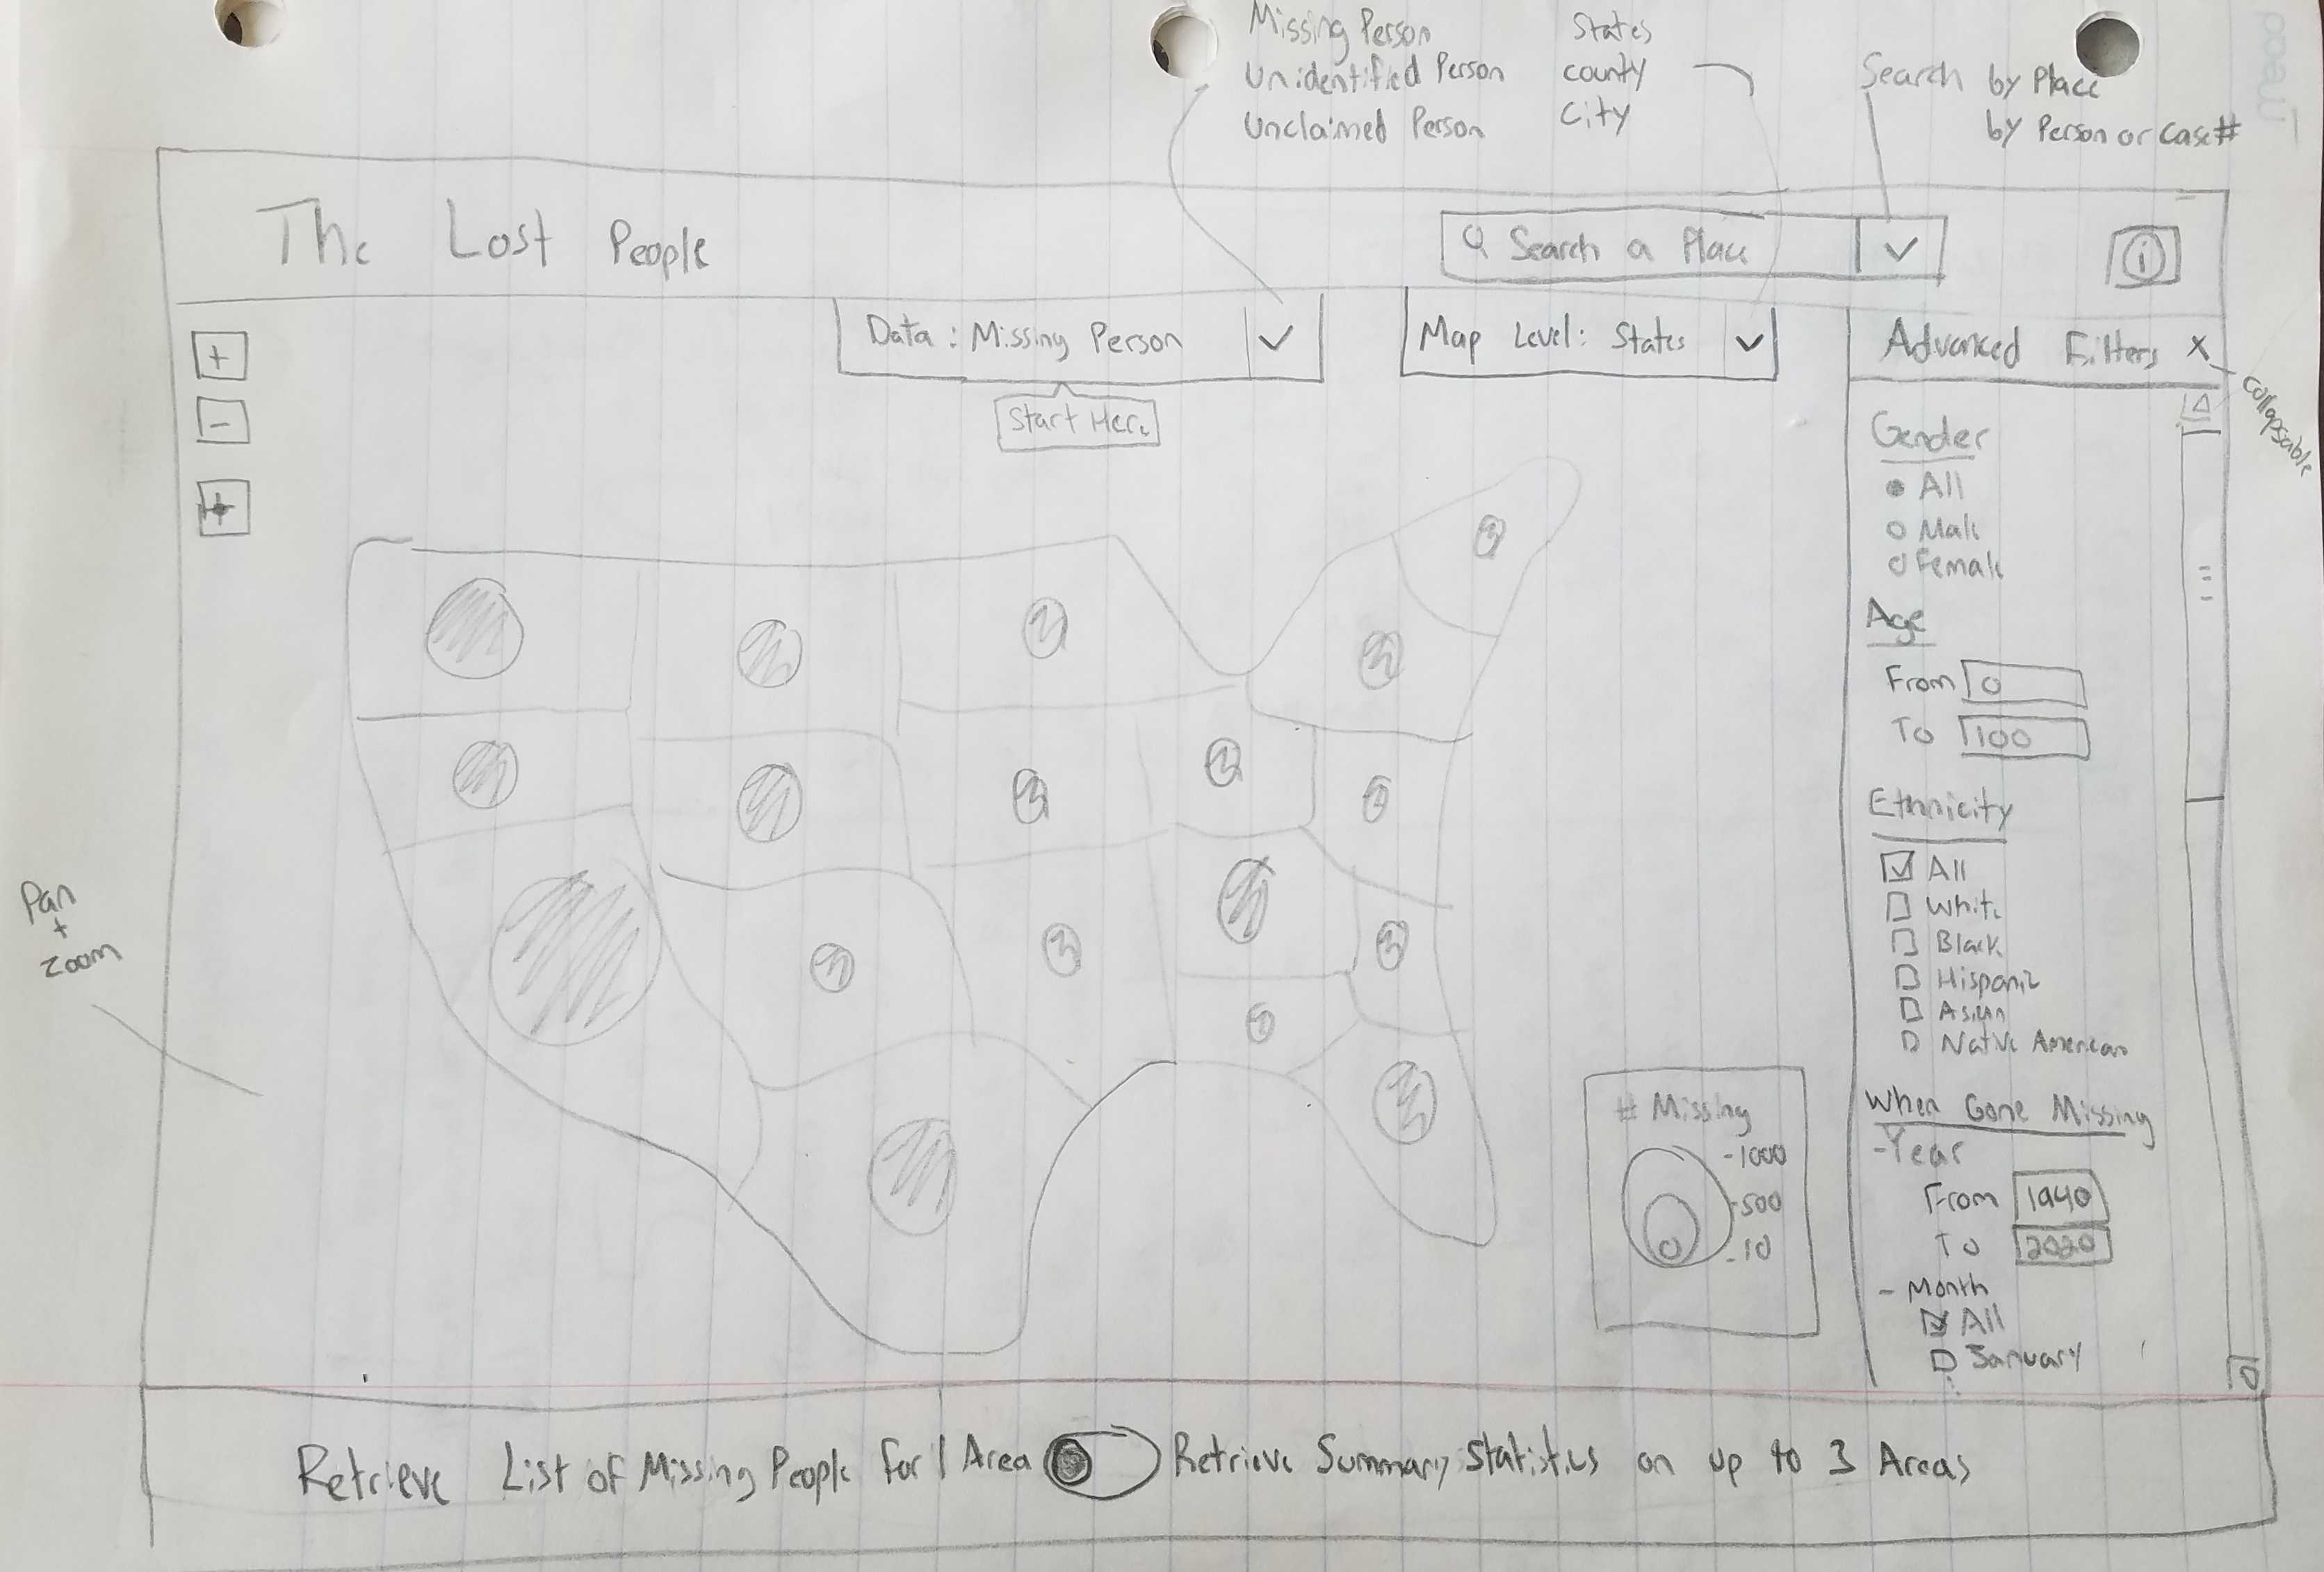 Missing Person
Unidentified Person
Unclaimed Person
States
county
City
Search by Place
by Person or case#
The Lost People
Search a Place
i
Data: Missing Person
Map Level: States
Advanced Filters X
collapsable
Start Here
+
-
Gender
All
Male
Female
Age
From 0
To 100
Ethnicity
All
White
Black
Hispanic
Asian
Native American
When Gone Missing
-Year
From 1940
To 2020
- Month
All
January
Pan
+
zoom
# Missing
-1000
-500
-10
Retrieve List of Missing People for 1 Area Retrieve Summary Statistics on up to 3 Areas